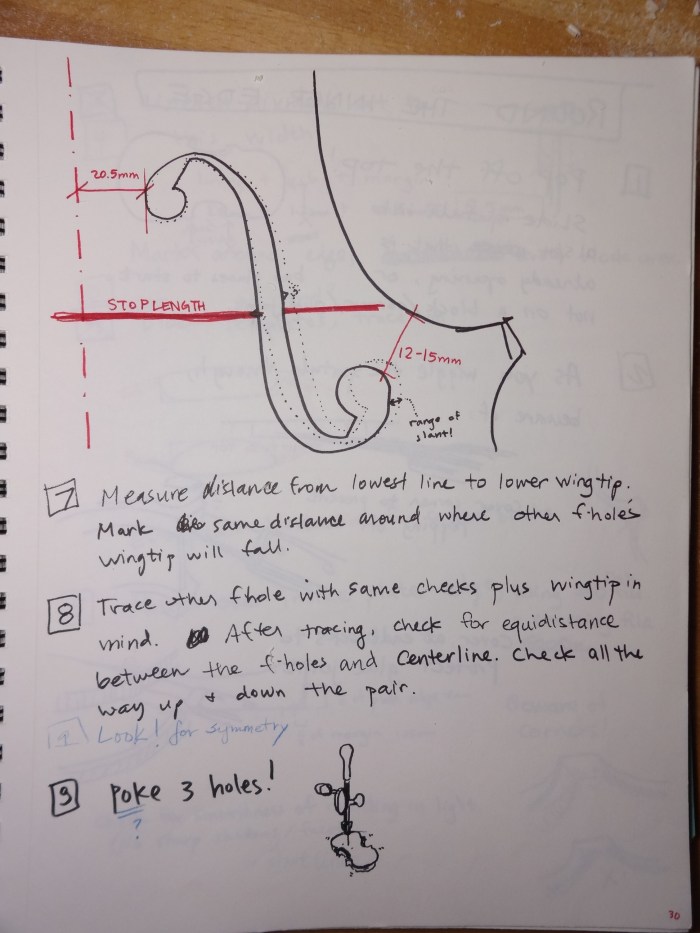 20.5mm
STOP LENGTH
12-15mm
range of
slant!
7 Measure distance from lowest line to lower wingtip.
Mark same distance around where other f-hole's
wingtip will fall.
8 Trace other fhole with same checks plus wingtip in
mind. After tracing, check for equidistance
between the f-holes and centerline. Check all the
way up & down the pair.
Look! for symmetry
9 Poke 3 holes!
?
30